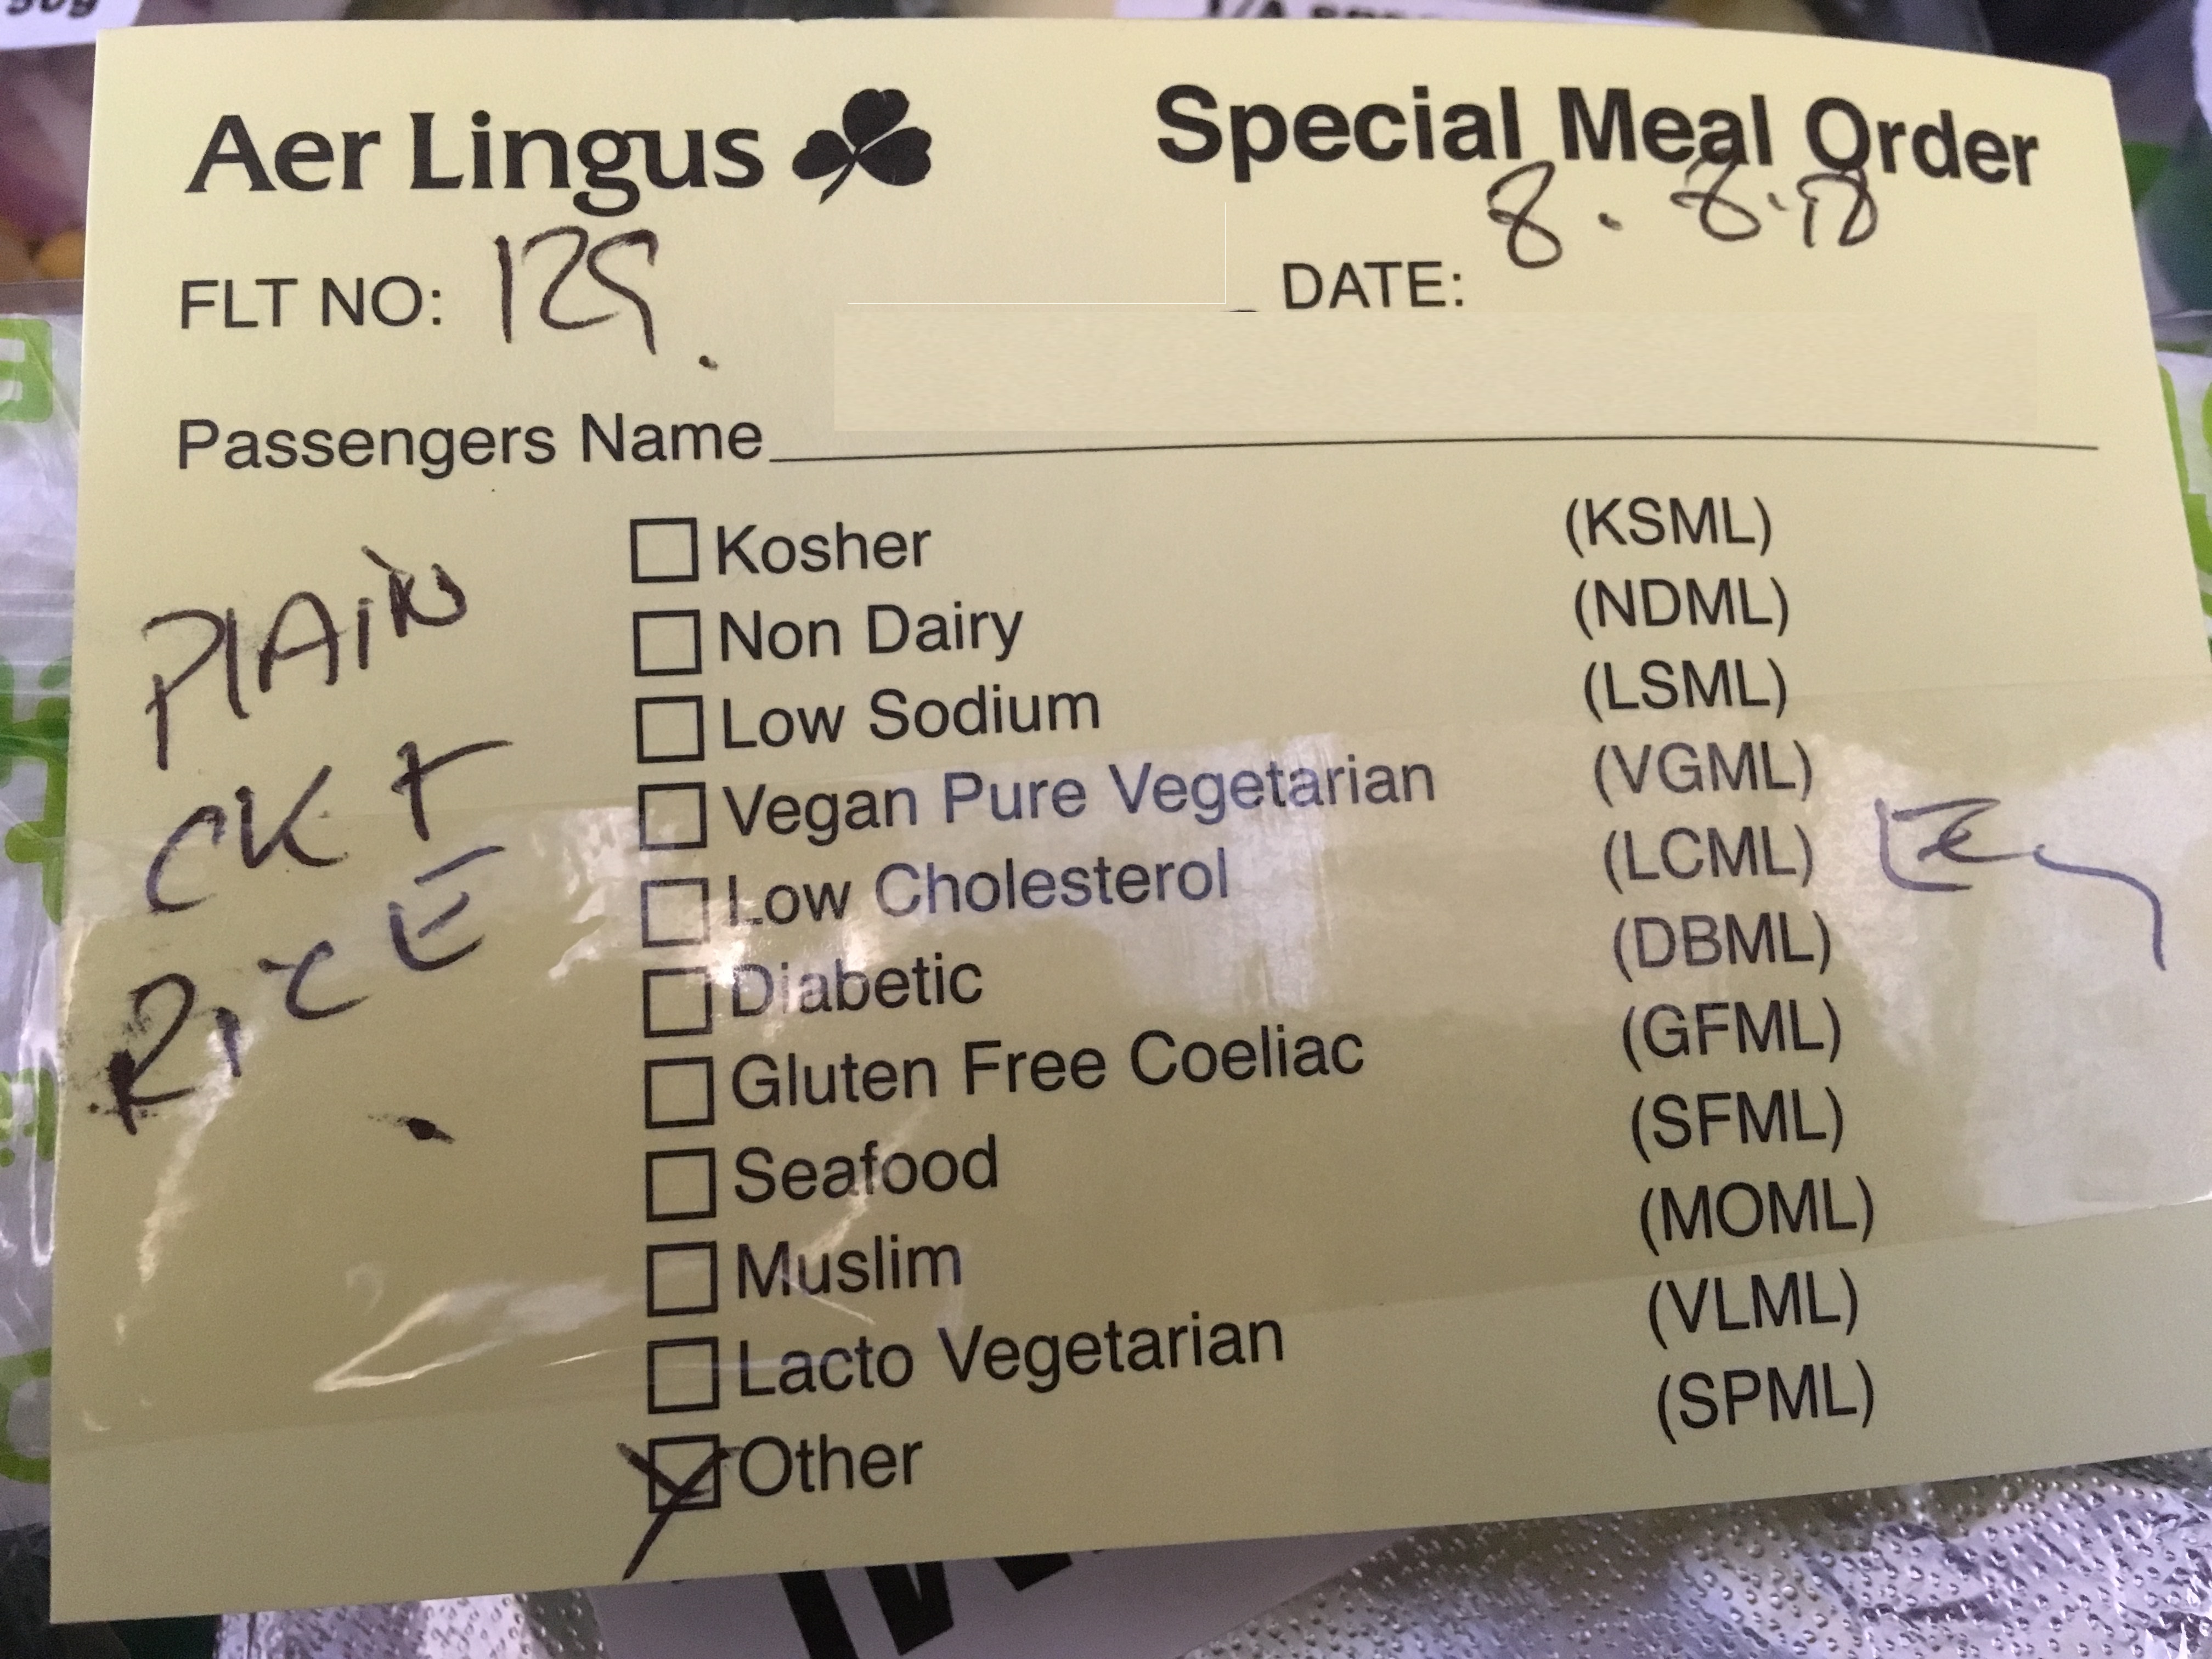 Aer Lingus
Special Meal Order
FLT NO: 129.
DATE: 8.8.18
Passengers Name
PLAiN
CK +
RicE
Kosher (KSML)
Non Dairy (NDML)
Low Sodium (LSML)
Vegan Pure Vegetarian (VGML)
Low Cholesterol (LCML)
Diabetic (DBML)
Gluten Free Coeliac (GFML)
Seafood (SFML)
Muslim (MOML)
Lacto Vegetarian (VLML)
Other (SPML)